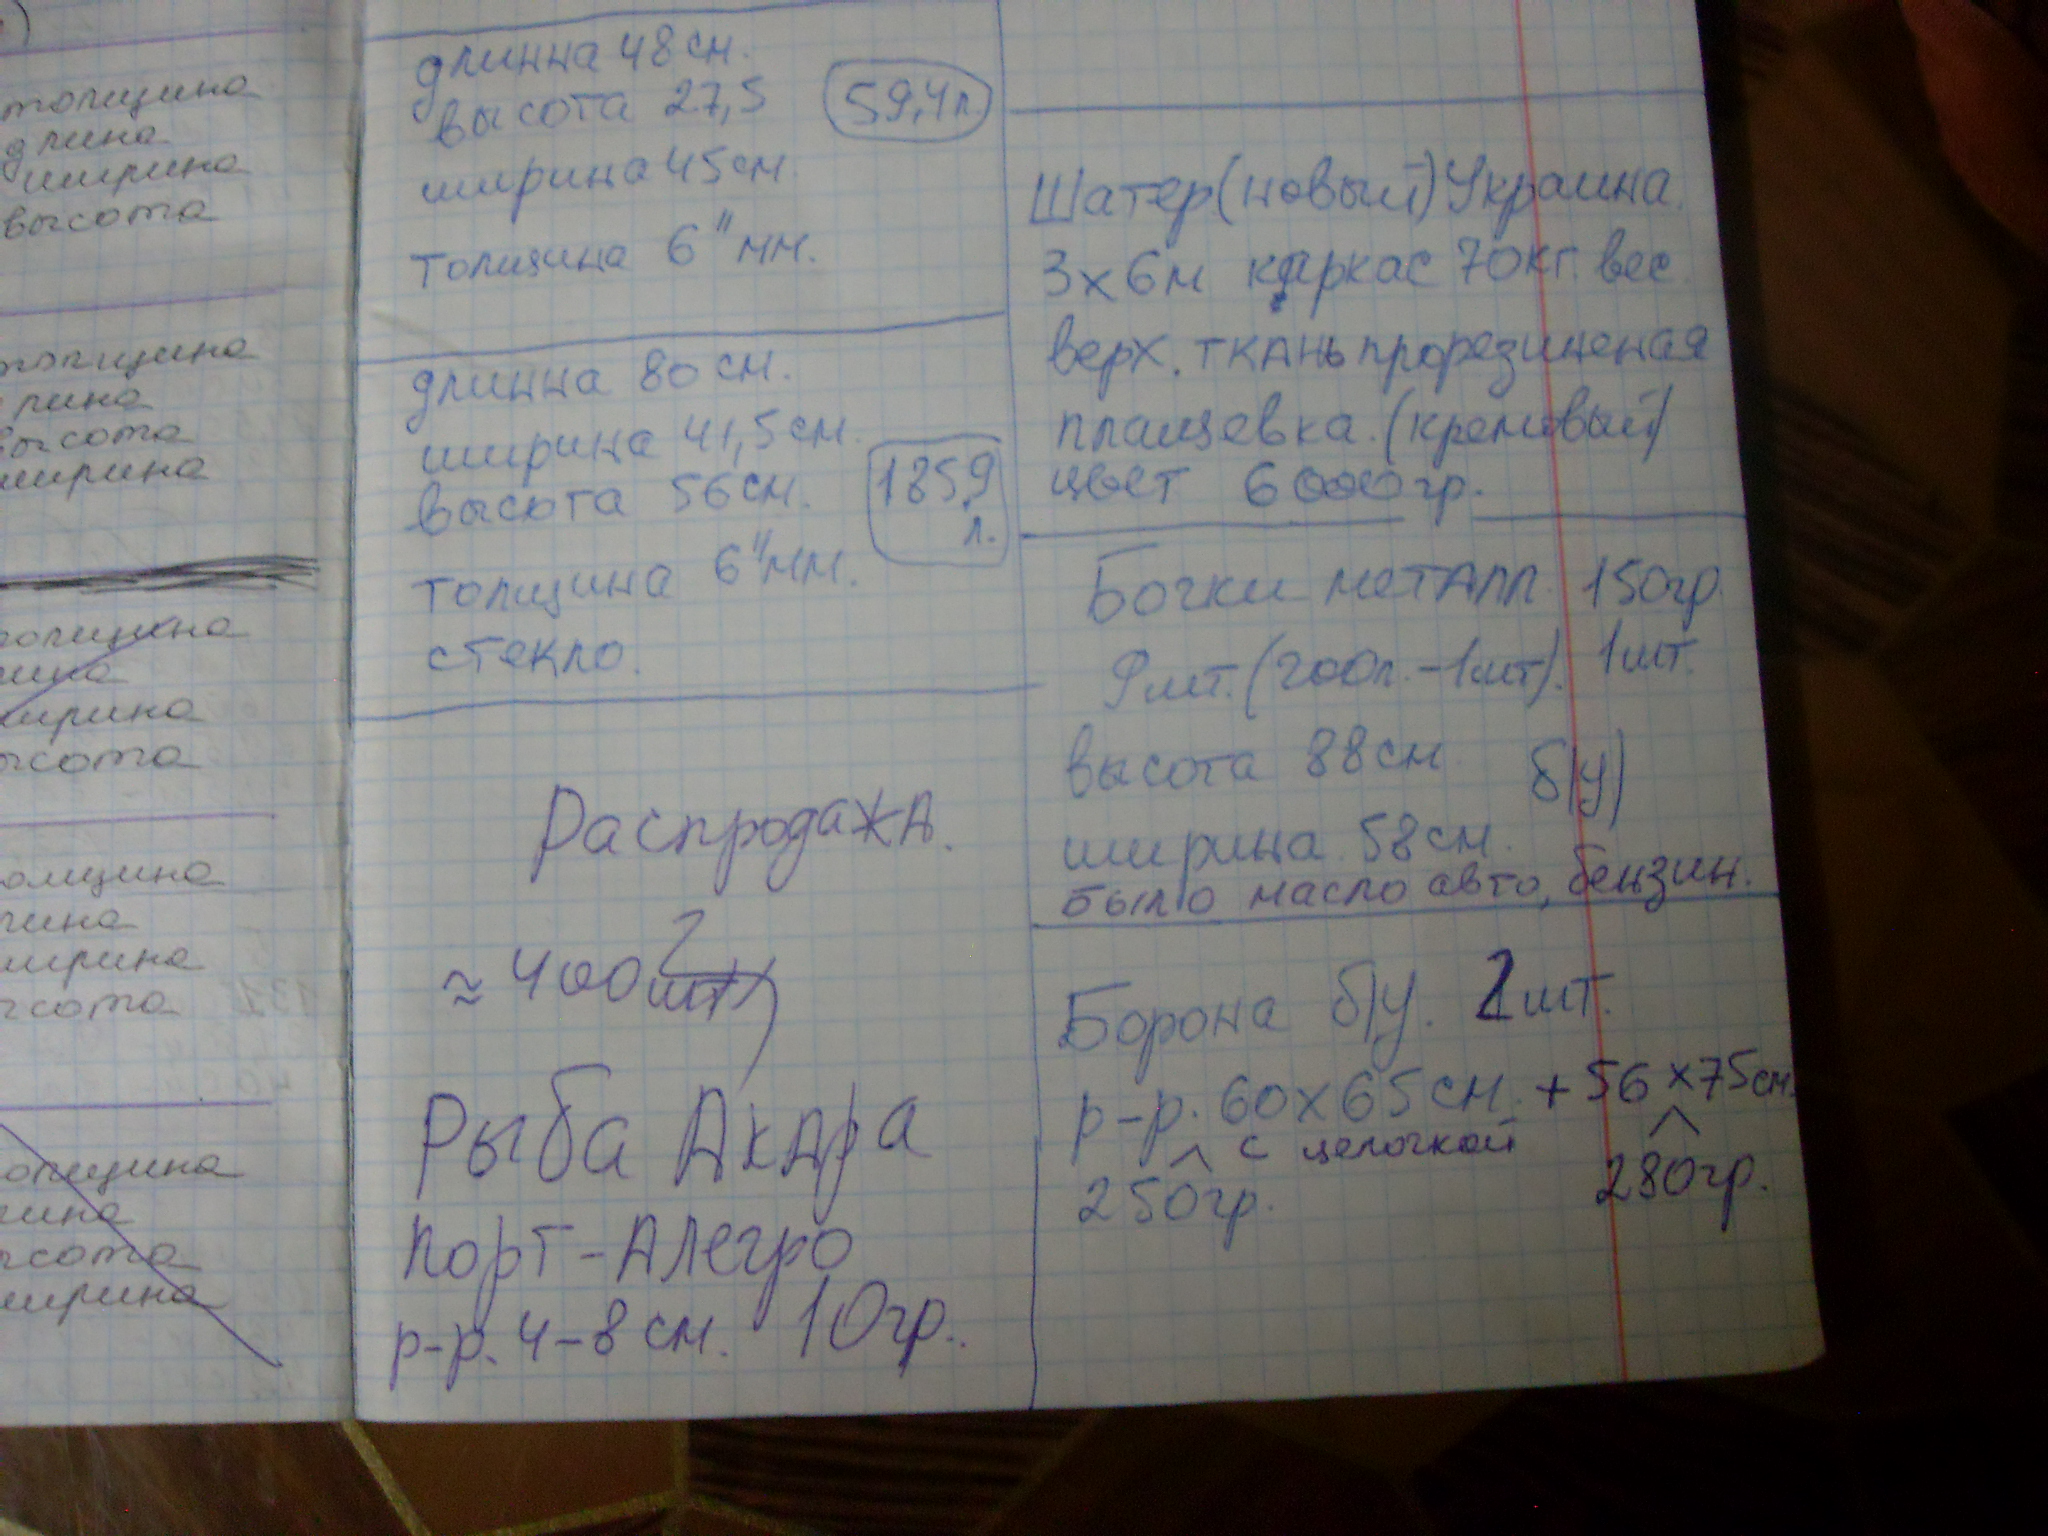 толщина
длина
ширина
высота
толщина
длина
высота
ширина
толщина
ширина
высота
толщина
длина
ширина
высота
толщина
длина
высота
ширина
длинна 48 см.
высота 27,5
59,4 л.
ширина 45 см.
толщина 6" мм.
длинна 80 см.
ширина 41,5 см.
высота 56 см.
185,9
л.
толщина 6" мм.
стекло.
Распродажа.
≈ 400 шт
Рыба Акара
порт-Алегро
р-р. 4-8 см. 10 гр.
Шатер (новый) Украина.
3х6м каркас 70 кг. вес.
верх. ткань прорезиненая
плащевка. (кремовый)
цвет 6000 гр.
Бочки металл. 150 гр.
9 шт. (200 л. - 1 шт). 1 шт.
высота 88 см. б/у)
ширина 58 см.
было масло авто, бензин.
Борона б/у. 2 шт.
р-р. 60х65 см. + 56х75 см.
с цепочкой
250 гр. 280 гр.